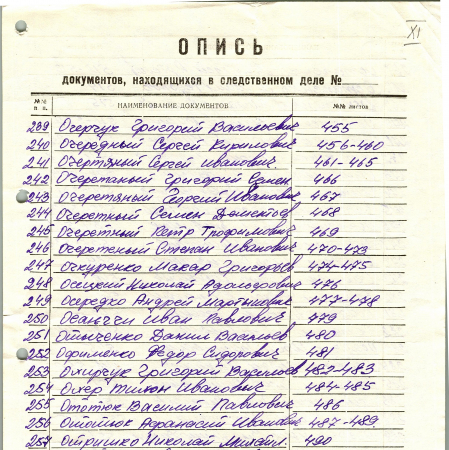 XI
ОПИСЬ
документов, находящихся в следственном деле №
№№ п. п. НАИМЕНОВАНИЕ ДОКУМЕНТОВ №№ листов
239 Очерчук Григорий Васильевич 455
240 Очередный Сергей Кирилович 456-460
241 Очертяный Сергей Иванович 461-465
242 Очеретаный Григорий 466
243 Очеретяный Георгий Иванович 467
244 Очеретный Семен Дементьев 468
245 Очеретный Петр Трофимович 469
246 Очеретный Степан Иванович 470-473
247 Очкуренко Макар Григорьев 474-475
248 Осецкий Николай Адольфович 476
249 Осередко Андрей Мартынович 477-478
250 Иван Павлович 479
251 Данил Васильев 480
252 Офименко Федор Сидорович 481
253 Охирчук Григорий Васильев 482-483
254 Охер Тихон Иванович 484-485
255 Ототюк Василий Павлович 486
256 Ототюк Афанасий Иванович 487-489
257 Отришко Николай Михайл. 490